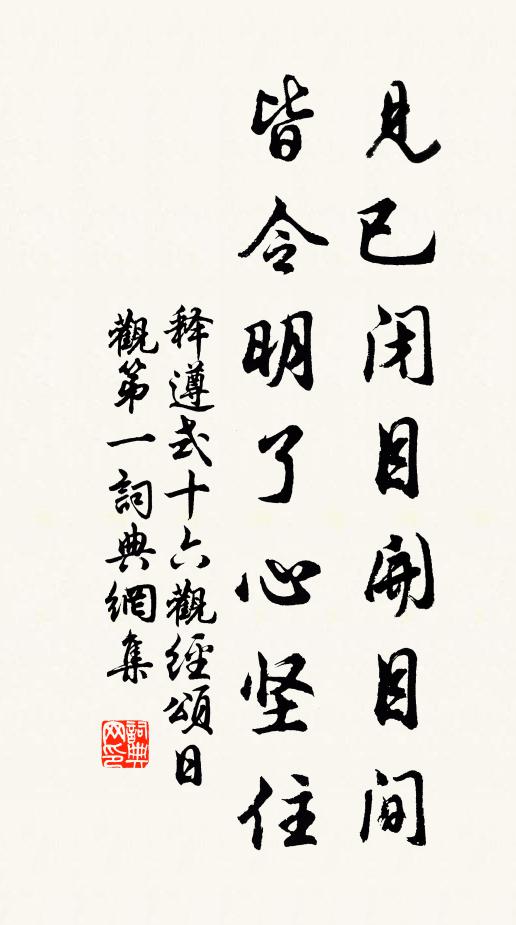 見已闭目開目间
皆令明了心坚住
释遵式十六觀經頌日
觀第一詞典網集
詞典网印